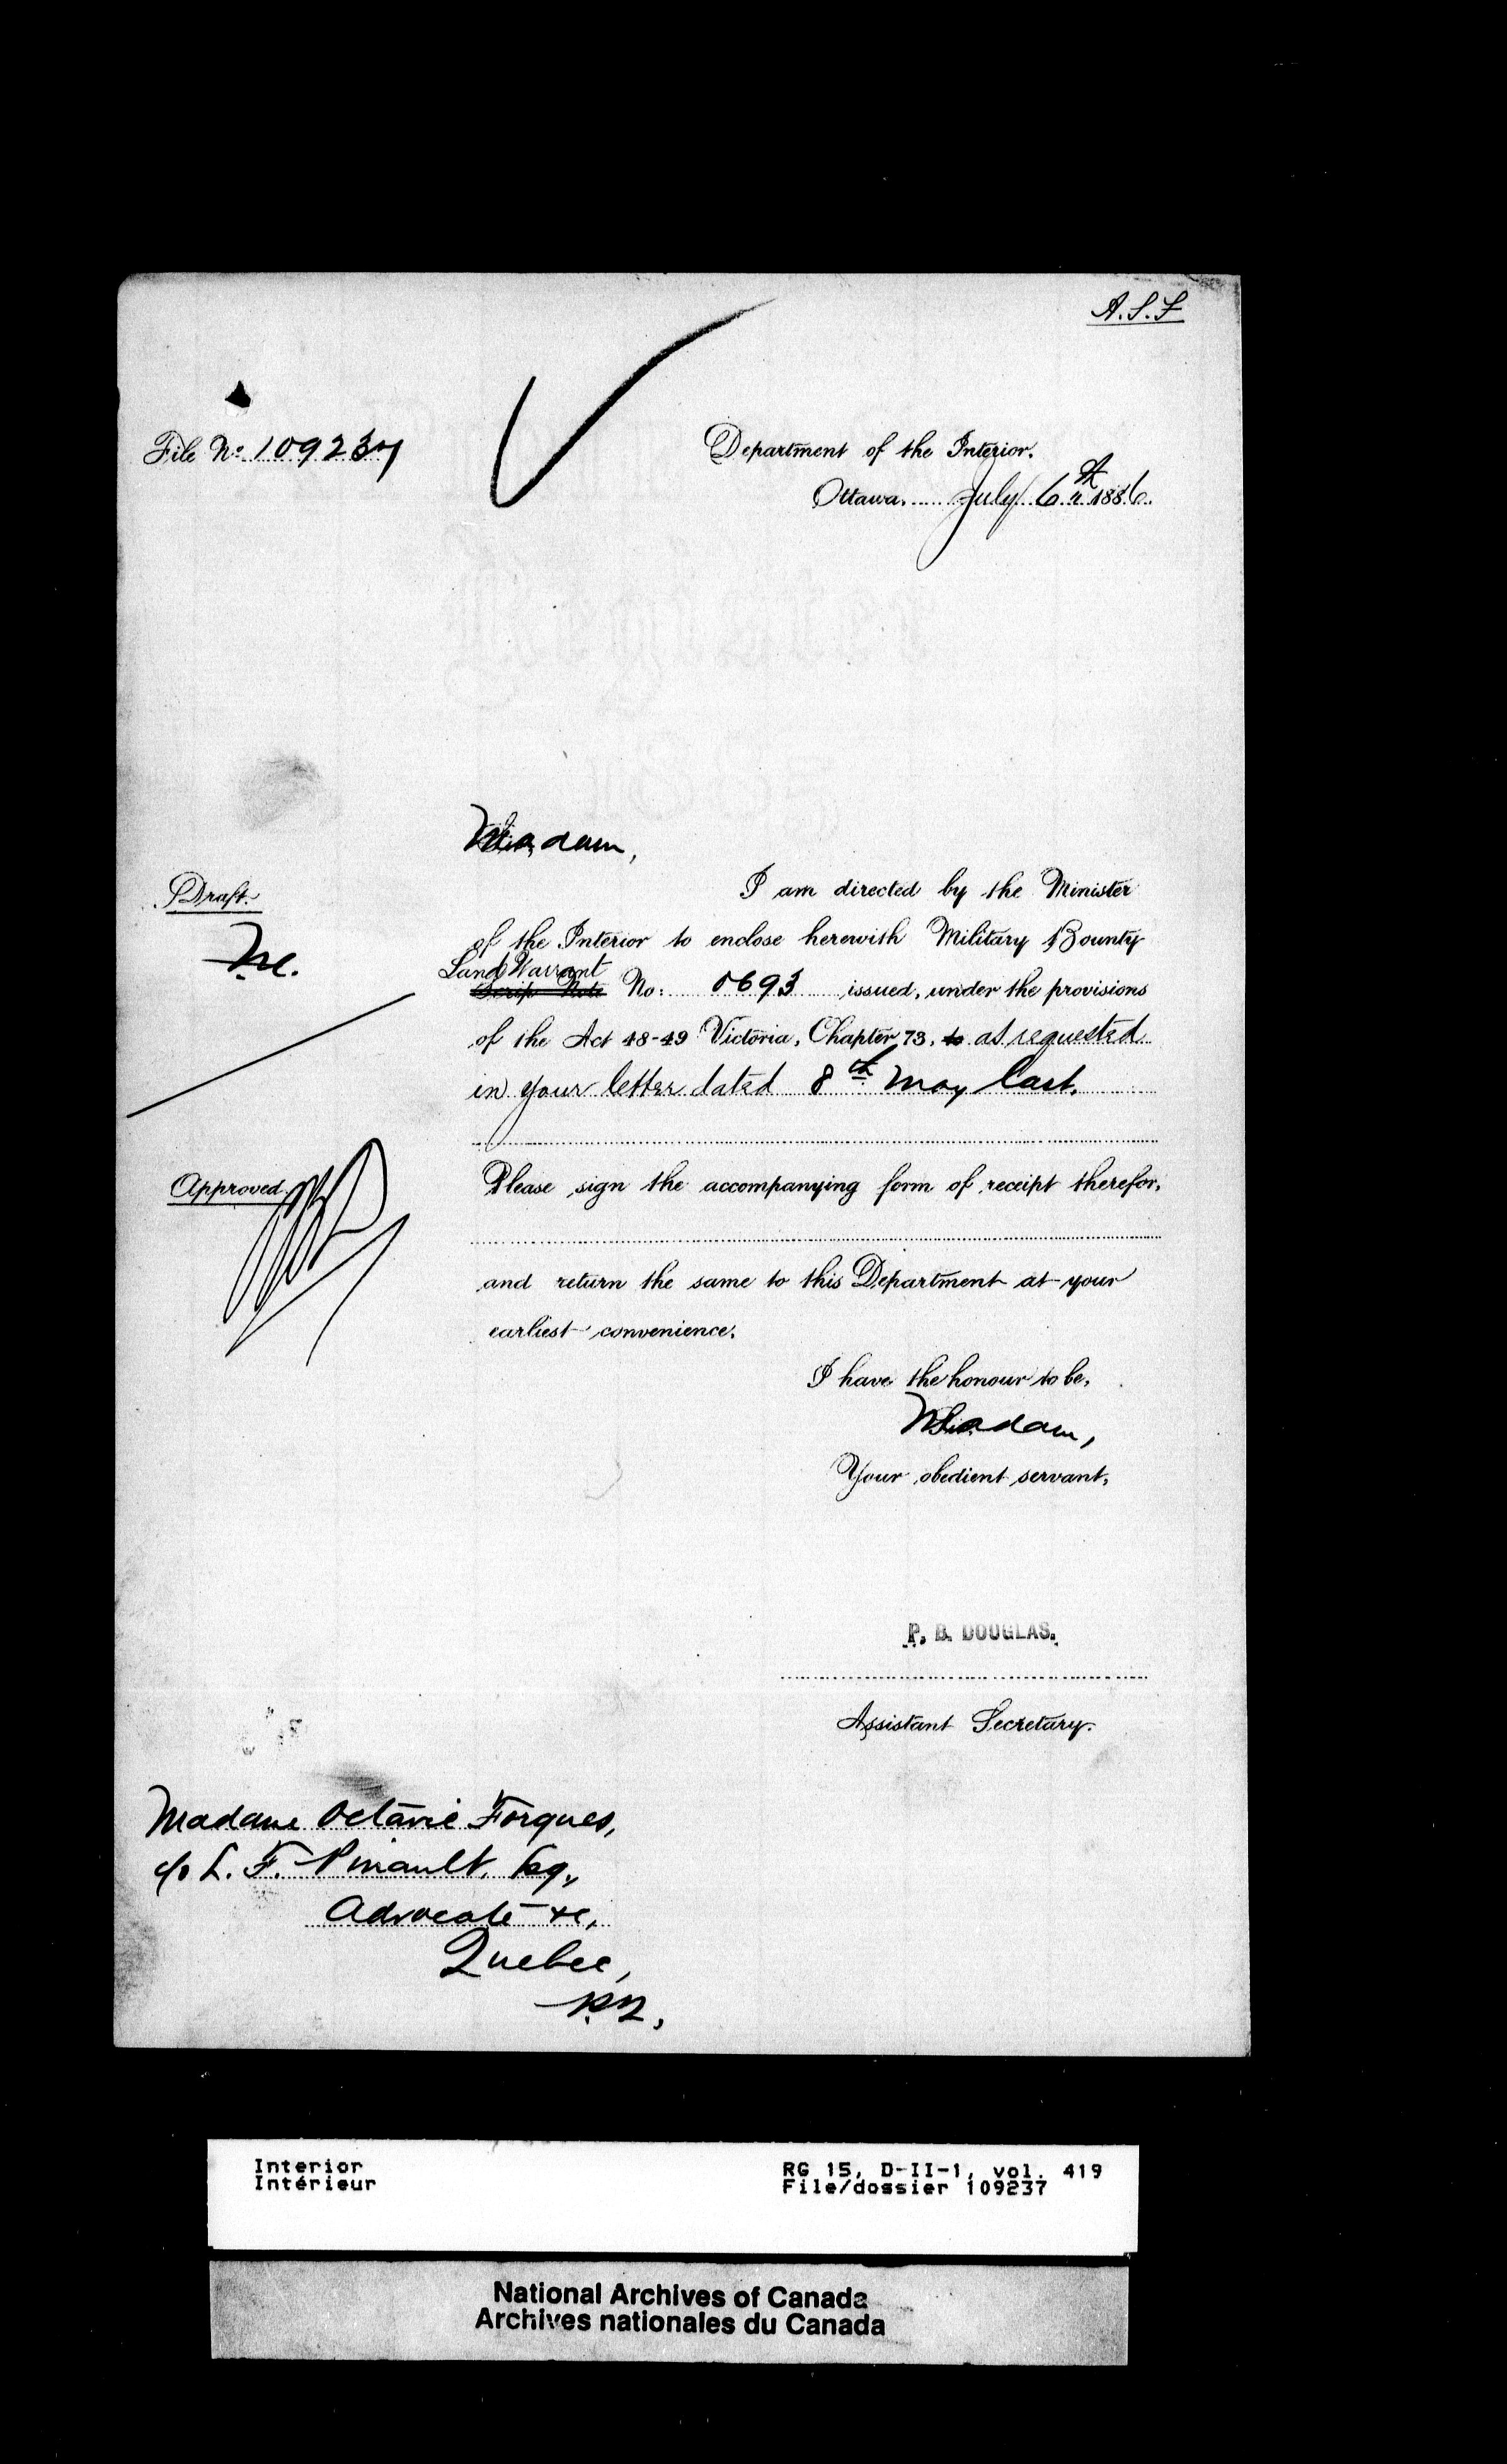 A.S.F
File No. 109237
Department of the Interior.
Ottawa. July 6th 1886.
Madam,
Draft.
I am directed by the Minister
of the Interior to enclose herewith Military Bounty
Land Warrant
Scrip Note No: 0693 issued, under the provisions
of the Act 48-49 Victoria, Chapter 73, to as requested
in your letter dated 8th May last.
Approved.
Please sign the accompanying form of receipt therefor,
and return the same to this Department at your
earliest convenience.
I have the honour to be,
Madam,
Your obedient servant,
P. B. DOUGLAS.
Assistant Secretary.
Madame Octavie Forgues,
c/o L. F. Pinault, Esq.,
Advocate &c,
Quebec,
P.Q.
Interior
Intérieur
RG 15, D-II-1, vol. 419
File/dossier 109237
National Archives of Canada
Archives nationales du Canada